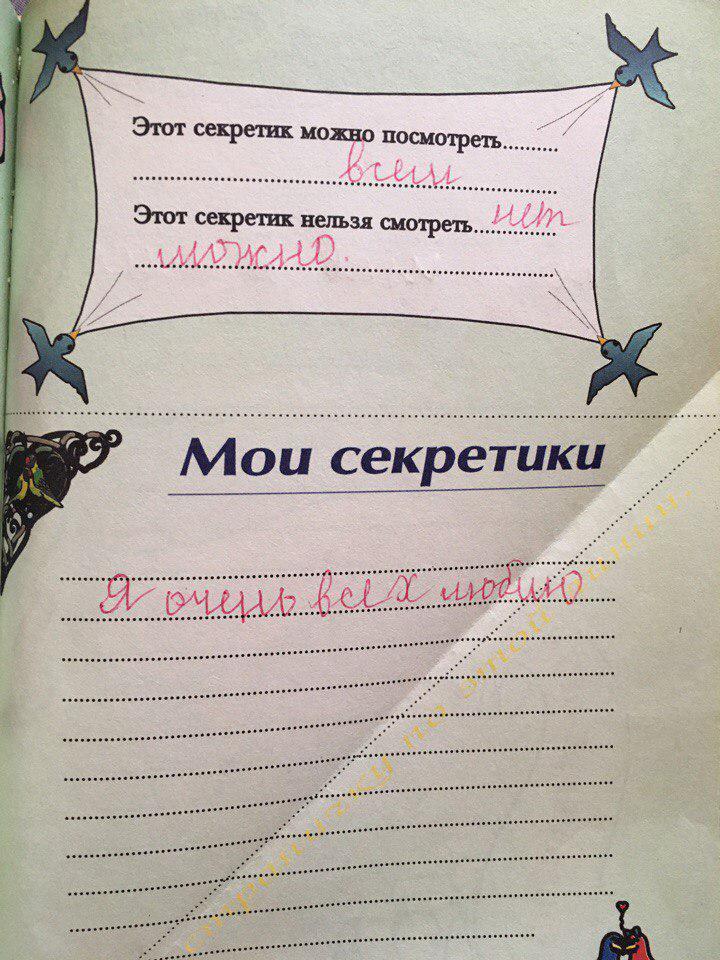 Этот секретик можно посмотреть..........
всем
Этот секретик нельзя смотреть.......... нет
можно.
Мои секретики
Я очень всех люблю
страничку по этой линии.